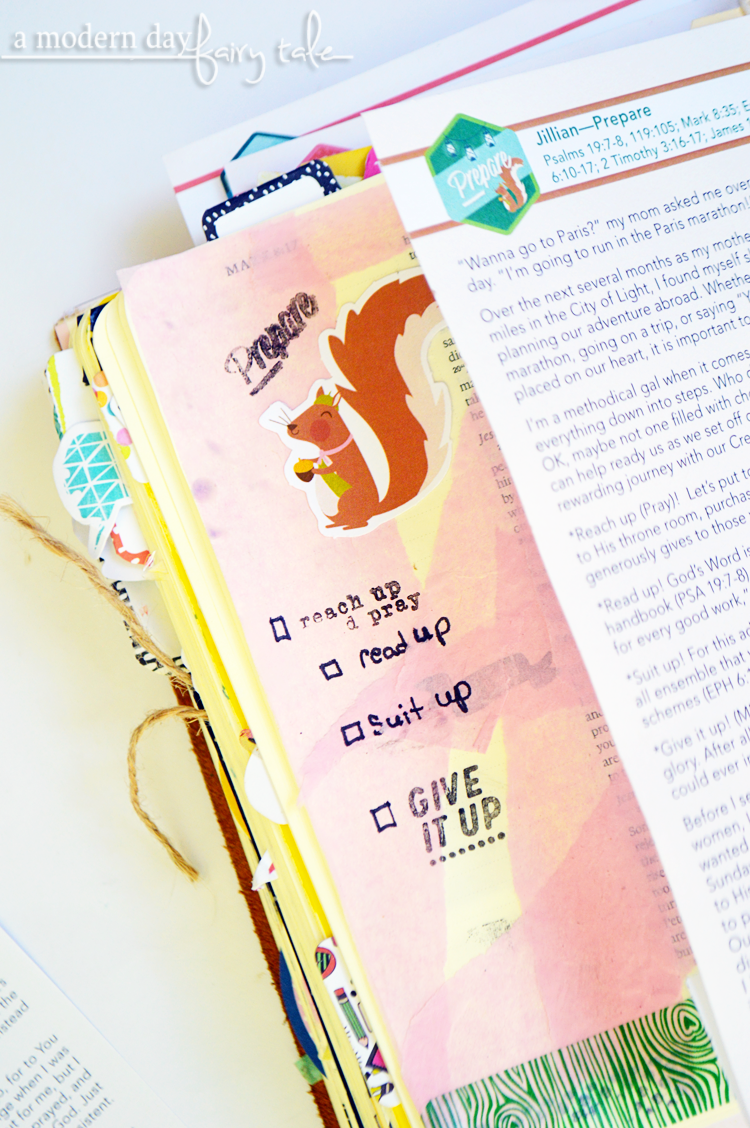 a modern day fairy tale
Jillian—Prepare
Psalms 19:7-8, 119:105; Mark 8:35; E
6:10-17; 2 Timothy 3:16-17; James 1
Prepare
"Wanna go to Paris?" my mom asked me over
day. "I'm going to run in the Paris marathon!
Over the next several months as my mothe
miles in the City of Light, I found myself s
planning our adventure abroad. Whethe
marathon, going on a trip, or saying "Y
placed on our heart, it is important to
I'm a methodical gal when it comes
everything down into steps. Who d
OK, maybe not one filled with ch
can help ready us as we set off o
rewarding journey with our Cre
*Reach up (Pray)! Let's put t
to His throne room, purchas
generously gives to those
*Read up! God's Word
handbook (PSA 19:7-8)
for every good work,
*Suit up! For this a
all ensemble that
schemes (EPH 6:
*Give it up! (M
glory. After all
could ever i
Before I se
women,
wanted
Sunday
to His
to p
Ou
di
Prepare
reach up
& pray
read up
Suit up
GIVE
IT UP
the
nstead
, for to You
ge when I was
t for me, but I
prayed, and
God. Just
sistent.